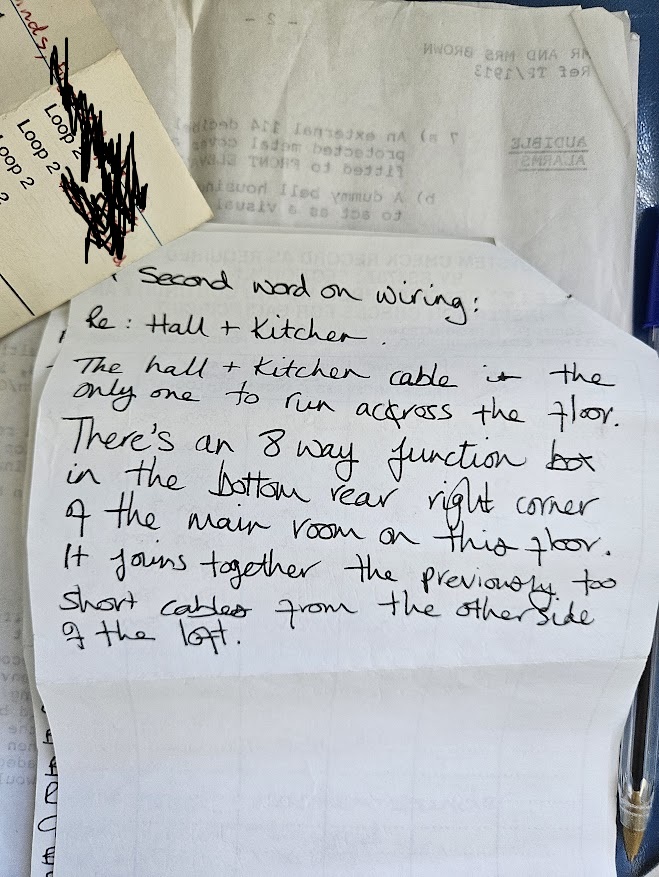 Second word on wiring:
Re: Hall + Kitchen.
The hall + Kitchen cable is the
only one to run accross the floor.
There's an 8 way junction box
in the bottom rear right corner
of the main room on this floor.
It joins together the previously too
short cables from the otherside
of the loft.
Loop 2
Loop 2
Loop 2
- 2 -
MR AND MRS BROWN
Ref TP/1913
AUDIBLE
ALARMS
7 a) An external 114 decibel
protected metal cover
fitted to FRONT ELEV
b) A dummy bell housing
to act as a visual
SYSTEM CHECK RECORD AS REQUIRED